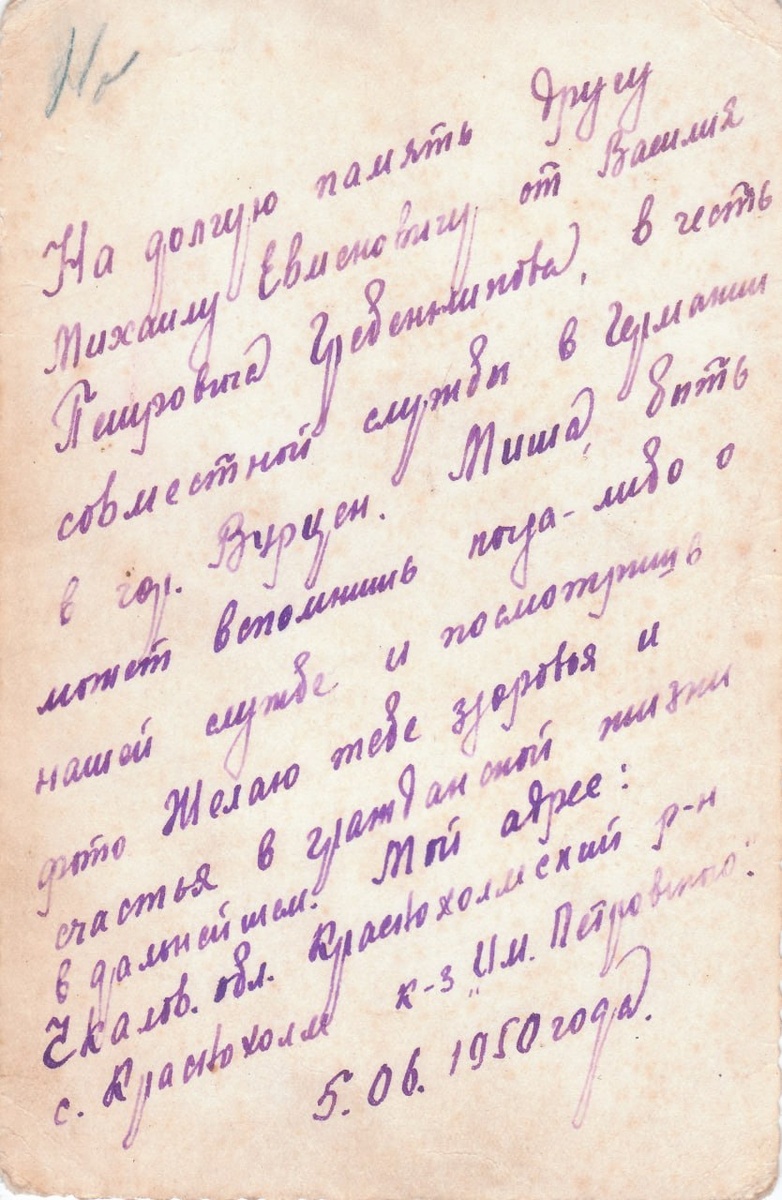 На долгую память другу
Михаилу Евменовичу от Василия
Петровича Гребенщикова, в честь
совместной службы в Германии
в гор. Вурцен. Миша, быть
может вспомнишь когда-либо о
нашей службе и посмотришь
фото Желаю тебе здоровья и
счастья в гражданской жизни
в дальнейшем. Мой адрес:
Чкалов. обл. Краснохолмский р-н
с. Краснохолм к-з „Им. Петровского".
5.06.1950 года.